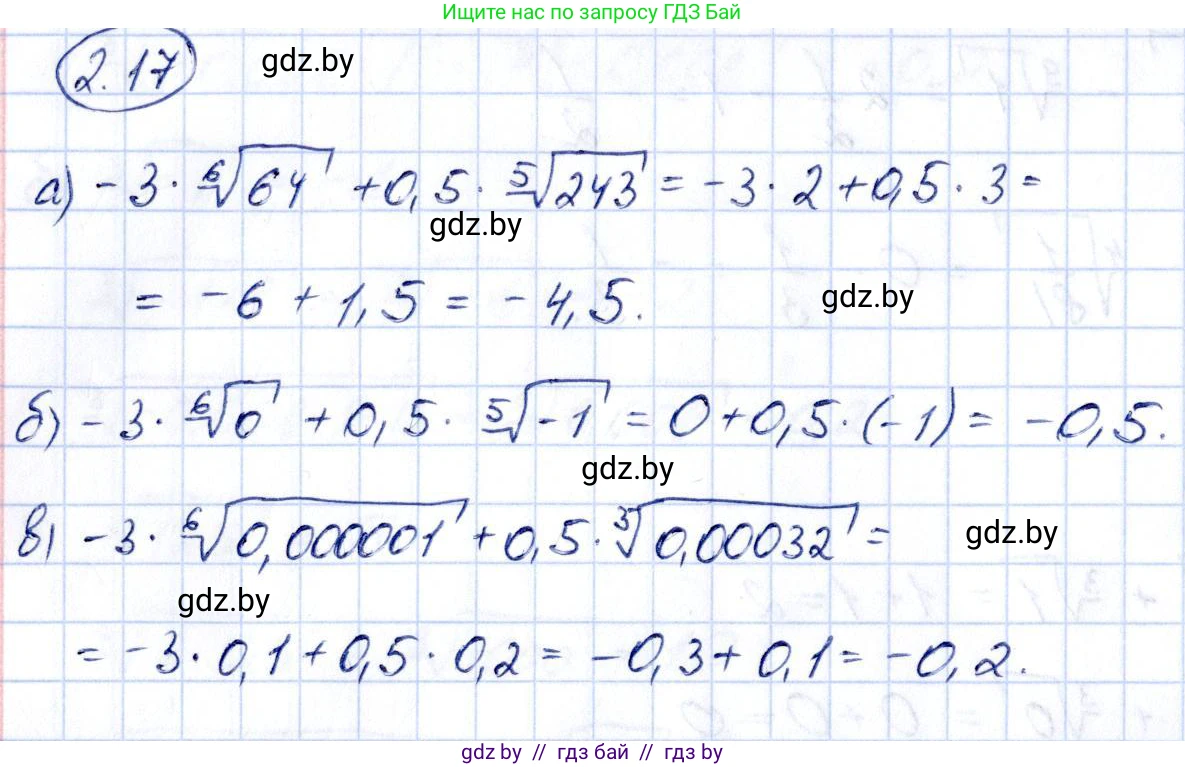 Ищите нас по запросу ГДЗ Бай
2.17 gdz.by
а) -3 · ⁶√64 + 0,5 · ⁵√243 = -3 · 2 + 0,5 · 3 =
gdz.by
= -6 + 1,5 = -4,5. gdz.by
б) -3 · ⁶√0 + 0,5 · ⁵√-1 = 0 + 0,5 · (-1) = -0,5.
gdz.by
в) -3 · ⁶√0,000001 + 0,5 · ³√0,00032 = gdz.by
gdz.by
= -3 · 0,1 + 0,5 · 0,2 = -0,3 + 0,1 = -0,2.
gdz.by // гдз бай // гдз by